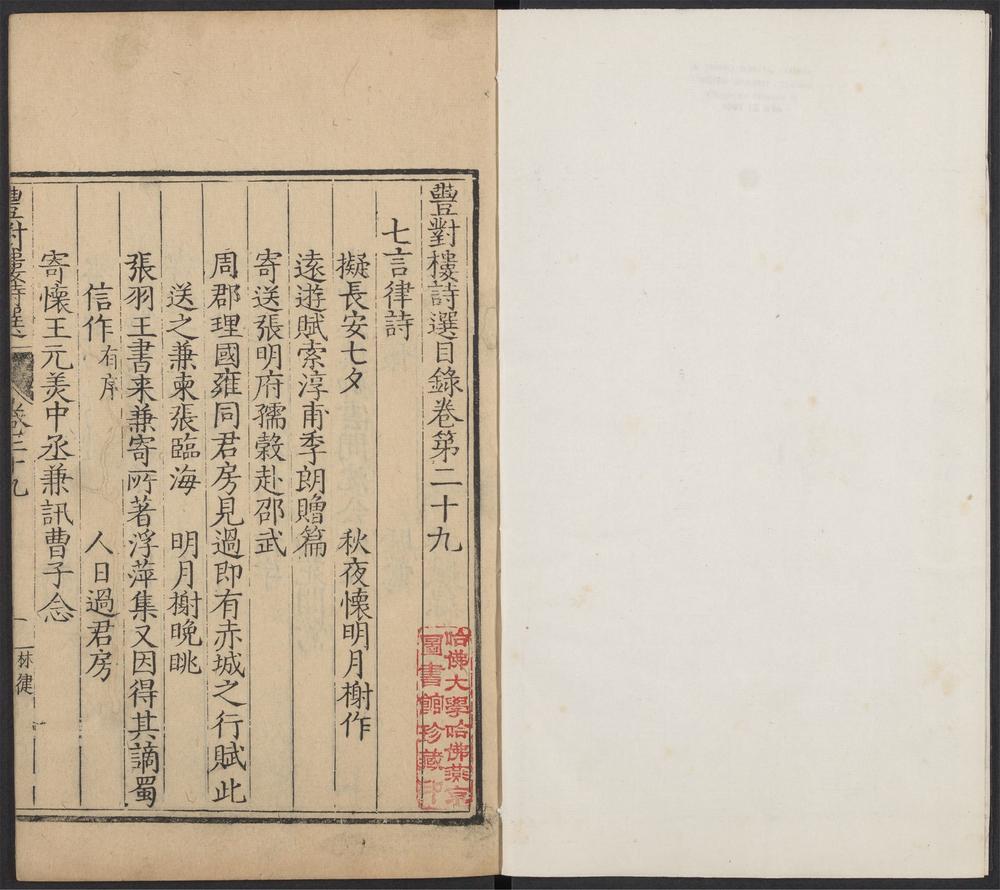 豐對樓詩選目錄卷第二十九
七言律詩
擬長安七夕　秋夜懷明月榭作
遠遊賦索淳甫季朗贈篇
寄送張明府孺穀赴邵武
周郡理國雍同君房見過即有赤城之行賦此
送之兼柬張臨海　明月榭晚眺
張羽王書来兼寄所著浮萍集又因得其謫蜀
信作有序　人日過君房
寄懷王元美中丞兼訊曹子念
豐對樓詩選
卷二十九
一
林健
哈佛大學哈佛燕京
圖書館珍藏印